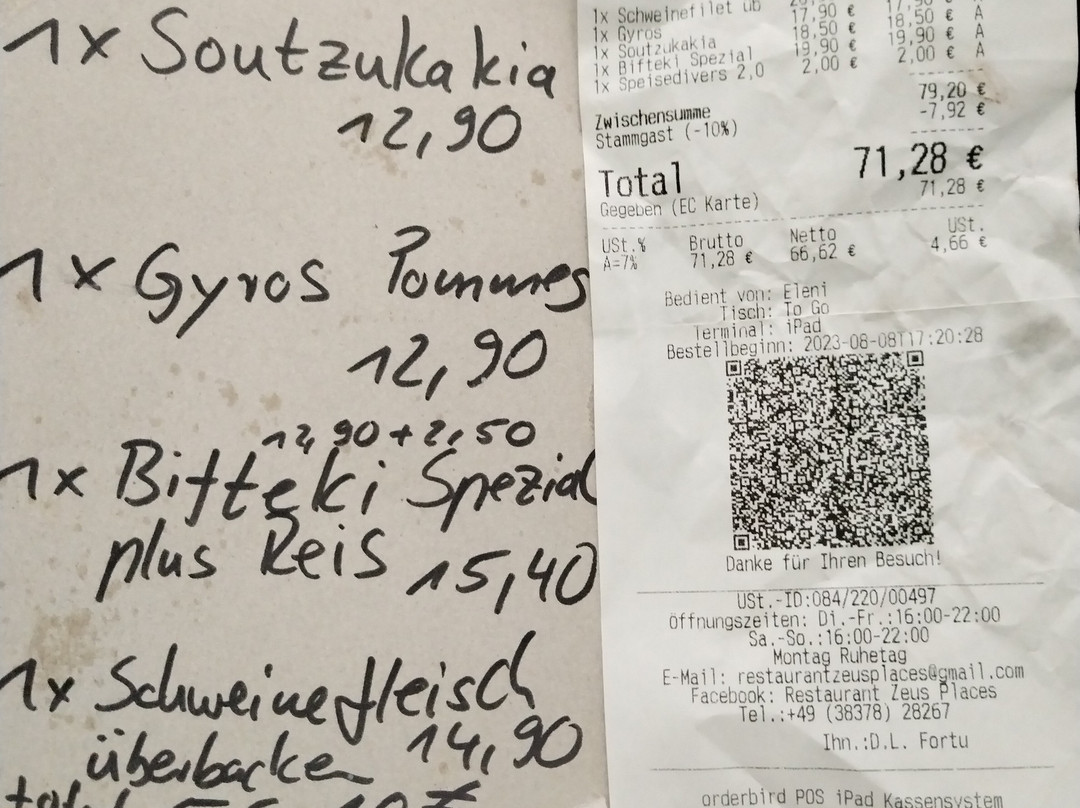 1x Soutzukakia
12,90
1x Gyros Pommes
12,90
12,90+2,50
1x Bifteki Spezial
plus Reis 15,40
1x Schweinefleisch
überbacken 14,90
1x Schweinefilet üb
1x Gyros 17,90 € 18,50 € A
1x Soutzukakia 18,50 € 19,90 € A
1x Bifteki Spezial 19,90 € 2,00 € A
1x Speisedivers 2,0 2,00 €
79,20 €
Zwischensumme -7,92 €
Stammgast (-10%)
Total 71,28 €
Gegeben (EC Karte) 71,28 €
USt.% Brutto Netto USt.
A=7% 71,28 € 66,62 € 4,66 €
Bedient von: Eleni
Tisch: To Go
Terminal: iPad
Bestellbeginn: 2023-08-08T17:20:28
Danke für Ihren Besuch!
USt.-ID:084/220/00497
Öffnungszeiten: Di.-Fr.:16:00-22:00
Sa.-So.:16:00-22:00
Montag Ruhetag
E-Mail: restaurantzeusplaces@gmail.com
Facebook: Restaurant Zeus Places
Tel.:+49 (38378) 28267
Ihn.:D.L. Fortu
orderbird POS iPad Kassensystem